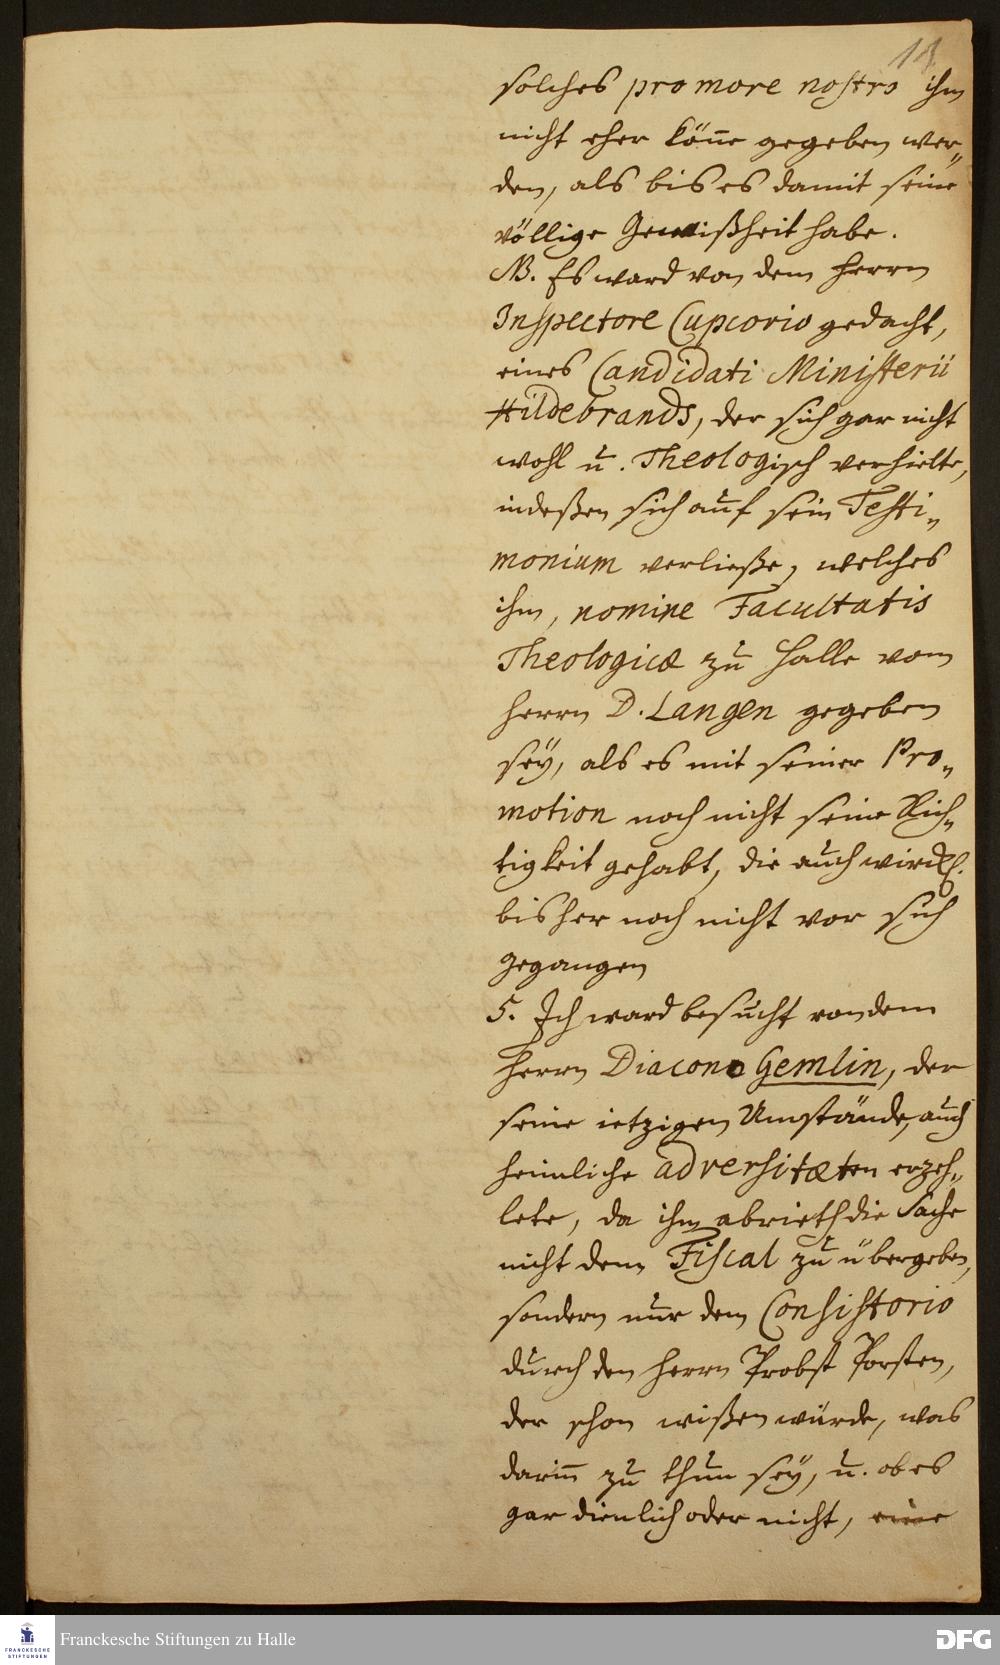 11
solches pro more nostro ihm
nicht eher könne gegeben wer„
den, als bis es damit seine
völlige Gewißheit habe.
NB. Es ward von dem Herrn
Inspectore Cupcovio gedacht,
eines Candidati Ministerii
Hildebrands, der sich gar nicht
wohl u. Theologisch verhielte,
indeßen sich auf sein Testi„
monium verließe, welches
ihm, nomine Facultatis
Theologicæ zu Halle vom
Herrn D. Langen gegeben
sey, als es mit seiner Pro„
motion noch nicht seine Rich„
tigkeit gehabt, die auch würckl.
bisher noch nicht vor sich
gegangen
5. Ich ward besucht von dem
Herrn Diacono Gemlin, der
seine ietzigen Umstände, auch
heimliche adversitæten erzeh„
lete, da ihm abrieth die Sache
nicht dem Fiscal zu übergeben,
sondern nur dem Consistorio
durch den Herrn Probst Porsten,
der schon wißen würde, was
darin zu thun sey, u. ob es
gar dienlich oder nicht, eine
Franckesche Stiftungen zu Halle
FRANCKESCHE
STIFTUNGEN
DFG